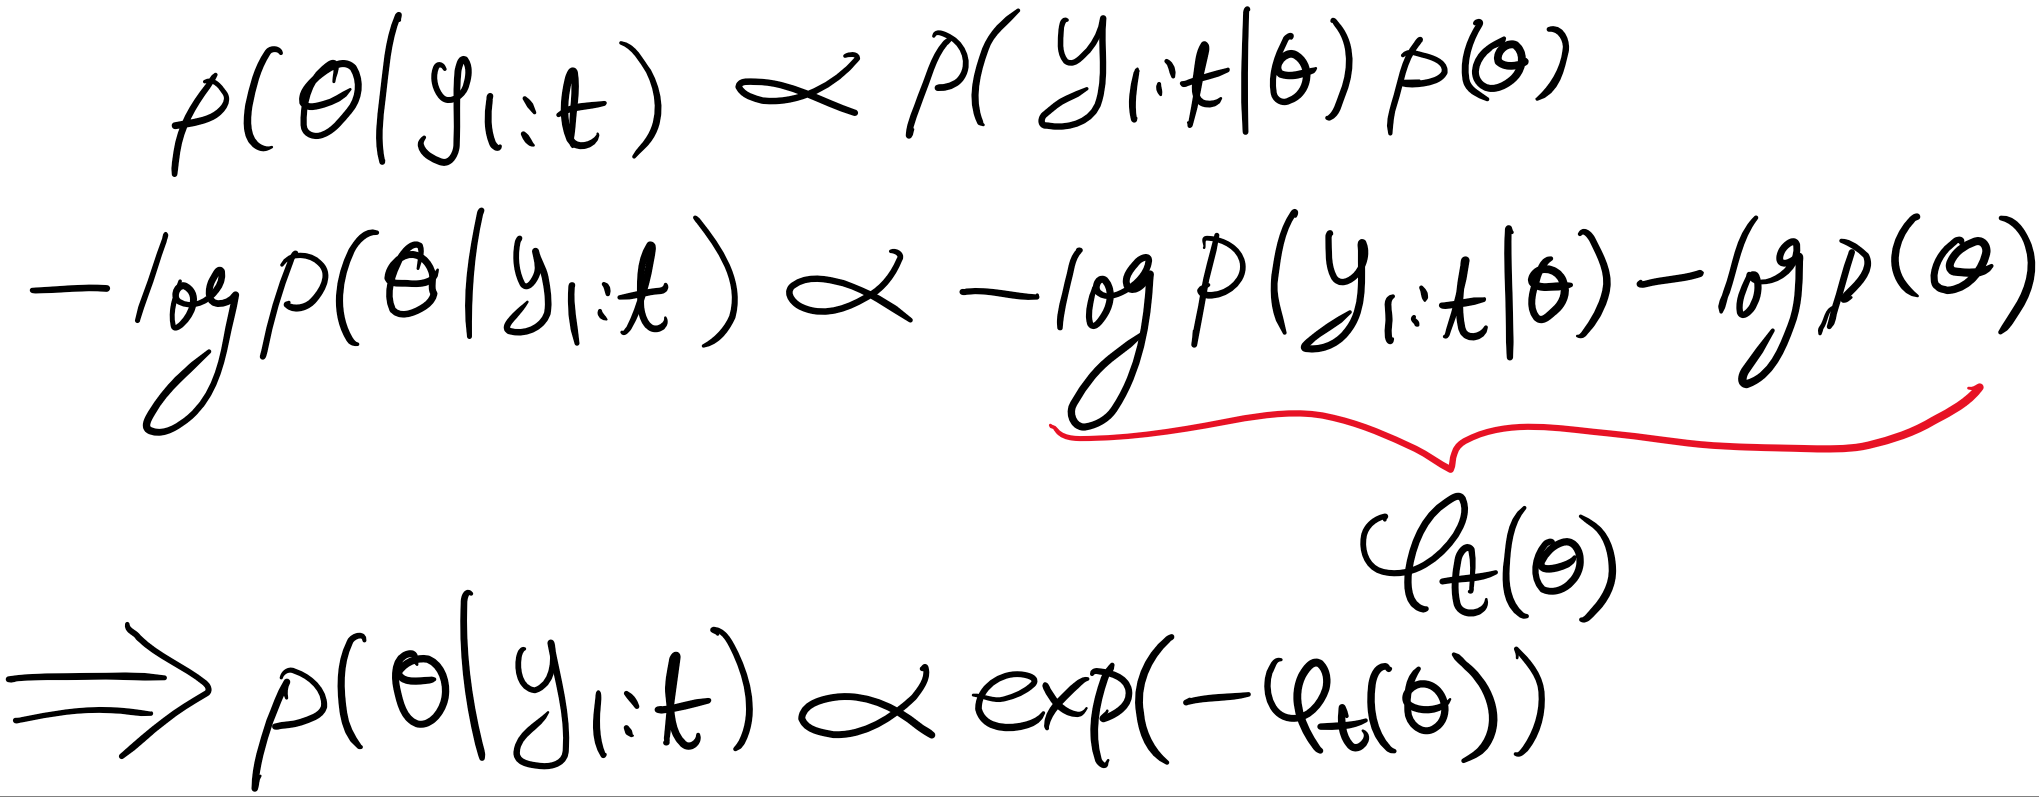 p(θ|y₁:t) ∝ p(y₁:t|θ) p(θ)
−log p(θ|y₁:t) ∝ −log p(y₁:t|θ) − log p(θ)
φt(θ)
⇒ p(θ|y₁:t) ∝ exp(−φt(θ))